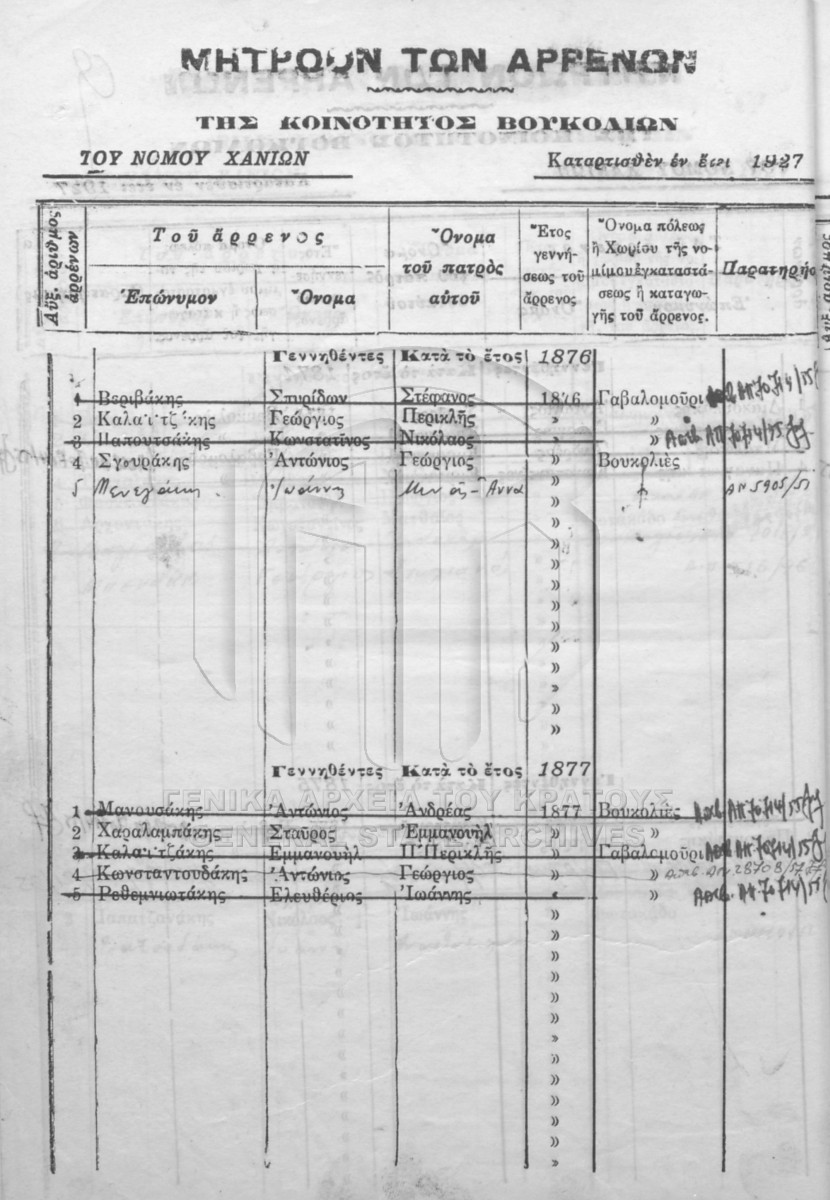 ΜΗΤΡΩΟΝ ΤΩΝ ΑΡΡΕΝΩΝ
ΤΗΣ ΚΟΙΝΟΤΗΤΟΣ ΒΟΥΚΟΛΙΩΝ
ΤΟΥ ΝΟΜΟΥ ΧΑΝΙΩΝ Καταρτισθὲν ἐν ἔτει 1927
Αὔξ. ἀριθμὸς ἀρρένων
Τοῦ ἄρρενος
Ἐπώνυμον Ὄνομα
Ὄνομα
τοῦ πατρὸς
αὐτοῦ
Ἔτος
γεννή-
σεως τοῦ
ἄρρενος
Ὄνομα πόλεως
ἢ Χωρίου τῆς νο-
μίμου ἐγκαταστά-
σεως ἢ καταγω-
γῆς τοῦ ἄρρενος.
Παρατηρήσ
Γεννηθέντες Κατὰ τὸ ἔτος 1876
1 Βεριβάκης Σπυρίδων Στέφανος 1876 Γαβαλομοῦρι ΑΠ 70714/55
2 Καλαϊτζάκης Γεώργιος Περικλῆς » »
3 Παπουτσάκης Κωνσταντῖνος Νικόλαος » » ΑΠ 70714/55
4 Σγουράκης Ἀντώνιος Γεώργιος » Βουκολιὲς
5 Μενεγάκης Ἰωάννης Μηνᾶς - Ἄννα » ΑΠ 5905/51
»
»
»
»
»
»
»
»
»
»
»
»
Γεννηθέντες Κατὰ τὸ ἔτος 1877
1 Μανουσάκης Ἀντώνιος Ἀνδρέας 1877 Βουκολιὲς ΑΠ 70714/55
2 Χαραλαμπάκης Σταῦρος Ἐμμανουὴλ » »
3 Καλαϊτζάκης Ἐμμανουὴλ Π''Περικλῆς » Γαβαλομοῦρι ΑΠ 70714/55
4 Κωνσταντουδάκης Ἀντώνιος Γεώργιος » » ΑΠ 28708/57
5 Ρεθεμνιωτάκης Ἐλευθέριος Ἰωάννης » » ΑΠ 70714/55
»
»
»
»
»
»
»
»
»
»
»
»
»
ΓΕΝΙΚΑ ΑΡΧΕΙΑ ΤΟΥ ΚΡΑΤΟΥΣ
GENERAL STATE ARCHIVES